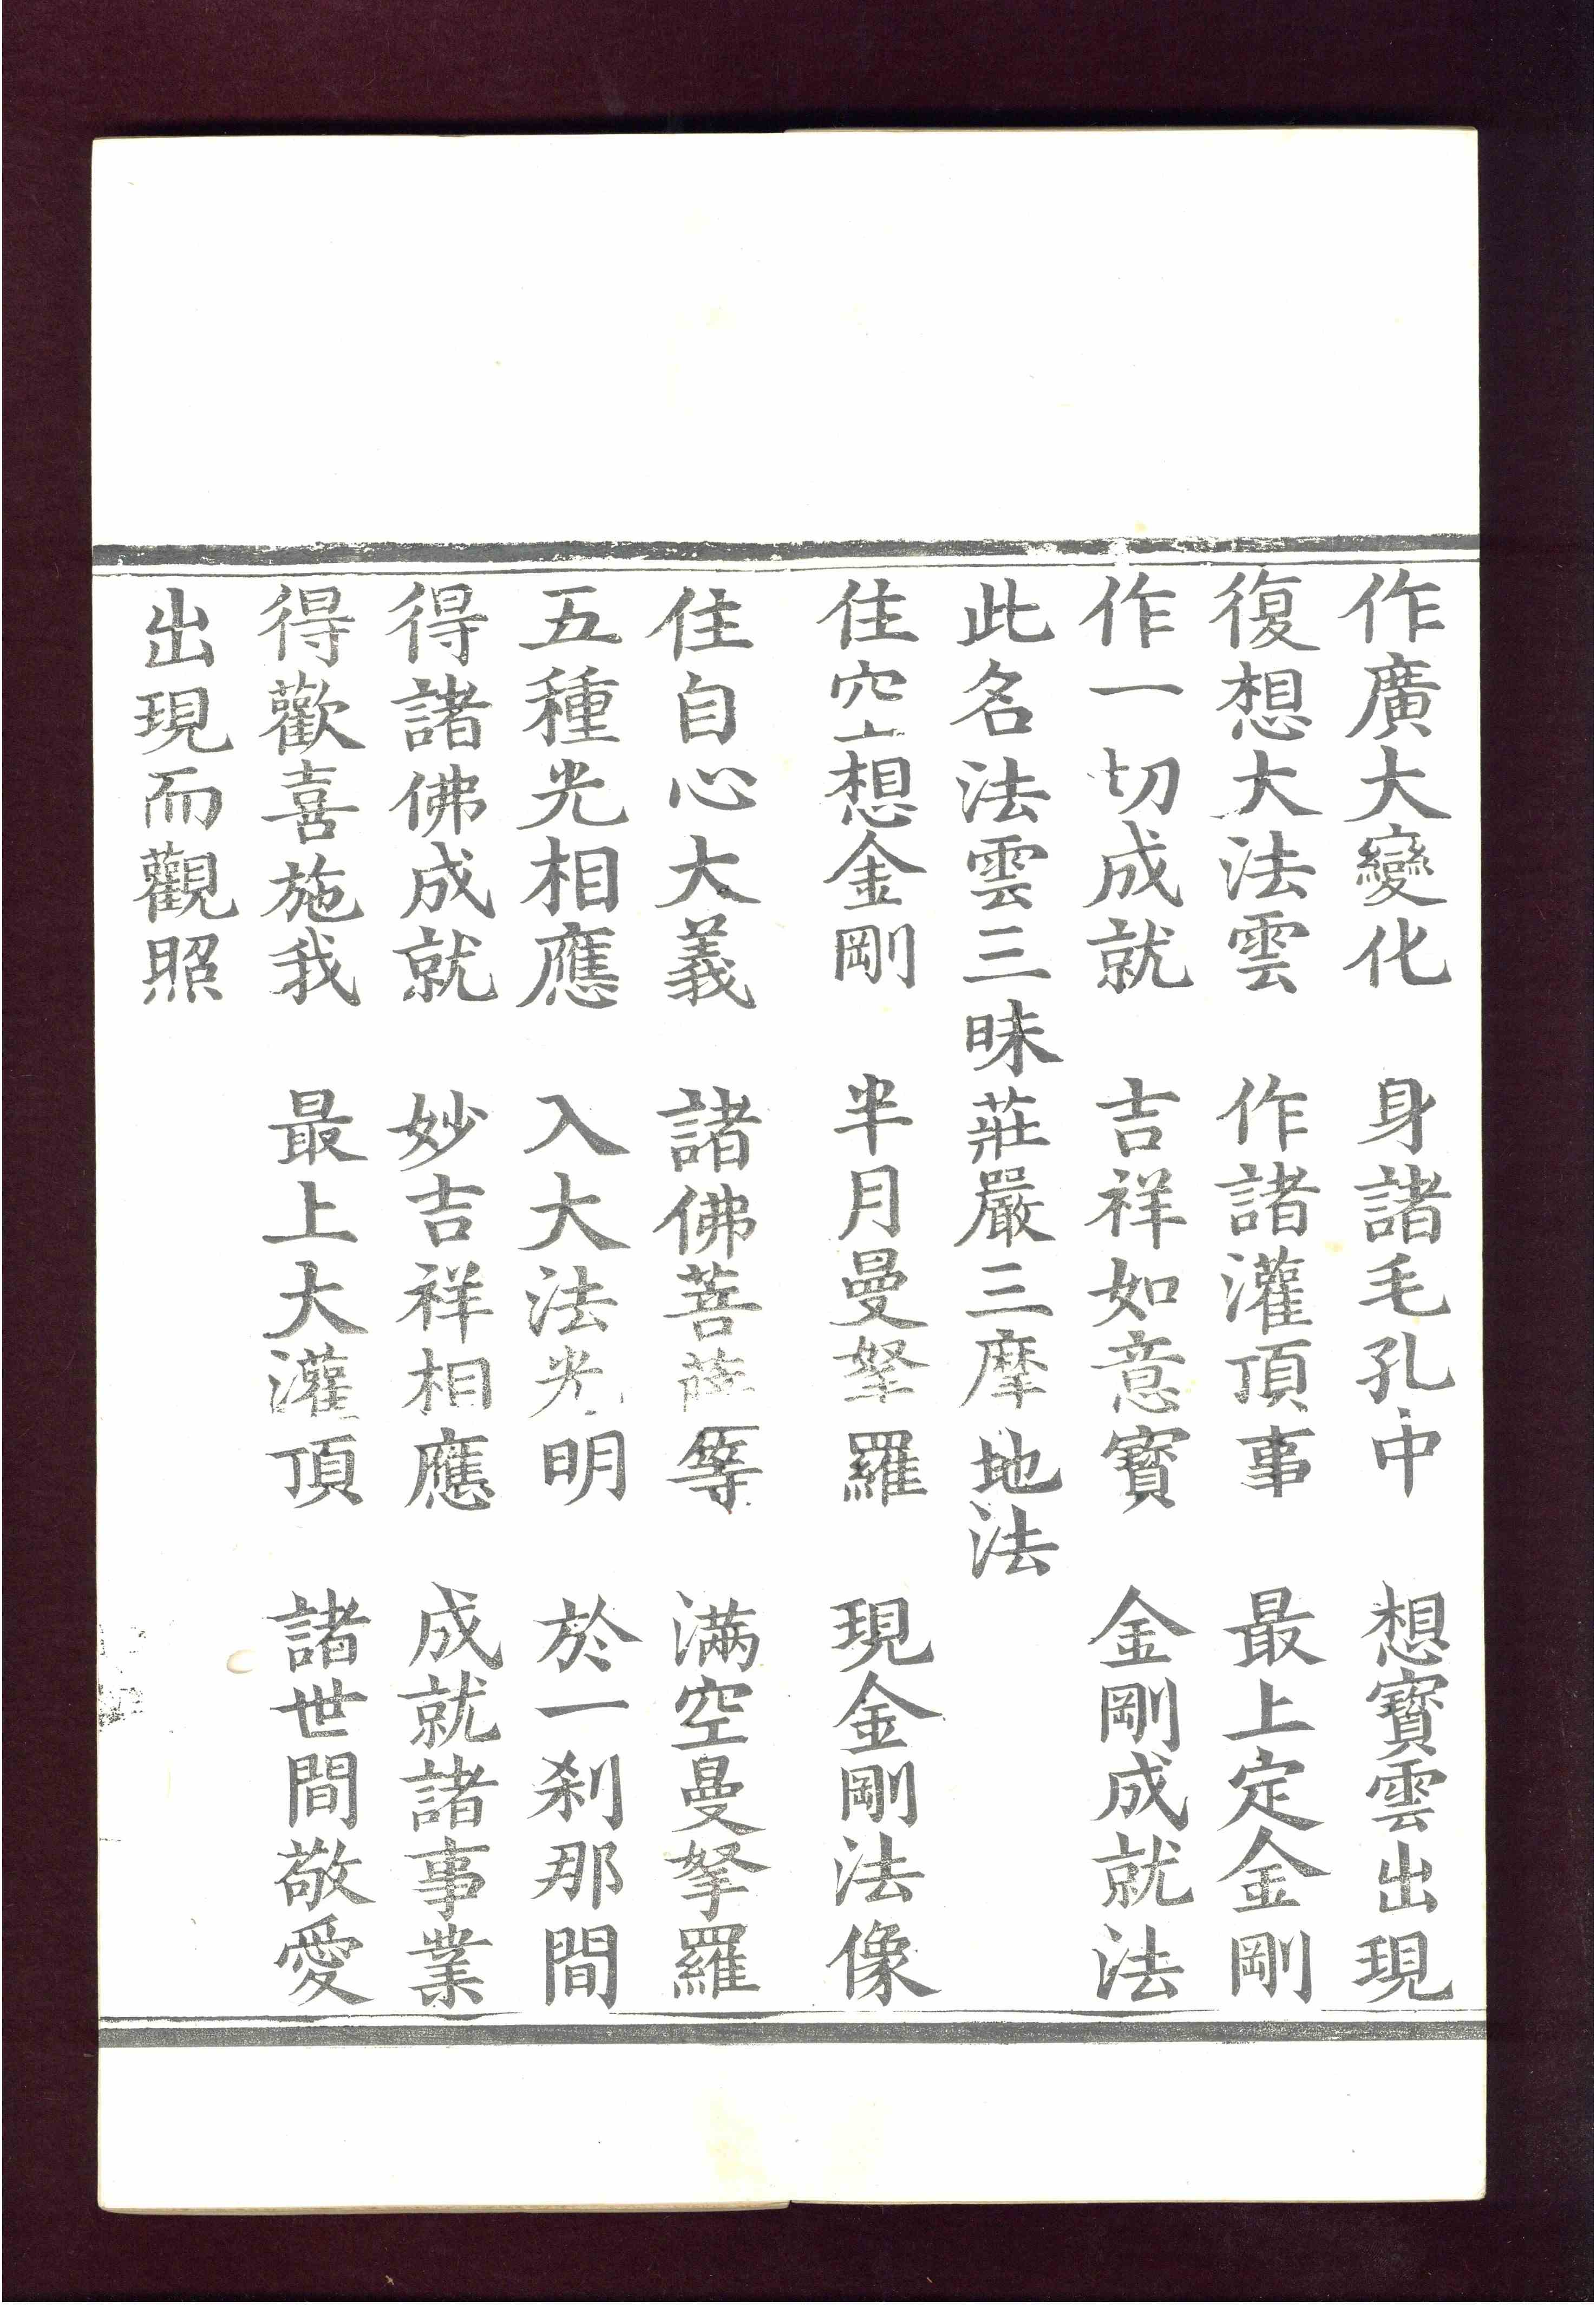 作廣大變化　身諸毛孔中　想寳雲出現
復想大法雲　作諸灌頂事　最上定金剛
作一切成就　吉祥如意寳　金剛成就法
此名法雲三昧莊嚴三摩地法
住空想金剛　半月曼拏羅　現金剛法像
住自心大義　諸佛菩薩等　滿空曼拏羅
五種光相應　入大法光明　於一刹那間
得諸佛成就　妙吉祥相應　成就諸事業
得歡喜施我　最上大灌頂　諸世間敬愛
出現而觀照